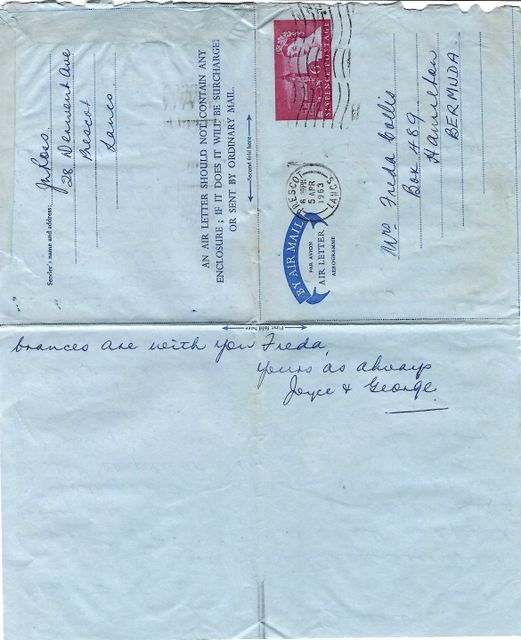 Sender's name and address:
28 Derwent Ave
Prescot
Lancs.
AN AIR LETTER SHOULD NOT CONTAIN ANY
ENCLOSURE ; IF IT DOES IT WILL BE SURCHARGED
OR SENT BY ORDINARY MAIL.
Second fold here
SIXPENCE POSTAGE
6
PRESCOT
5 APR
1963
LANCS
BY AIR MAIL
PAR AVION
AIR LETTER
AEROGRAMME
Mrs Freda Collis
Box 489
Hamilton
BERMUDA
First fold here
brances are with you Freda,
yours as always
Joyce & George